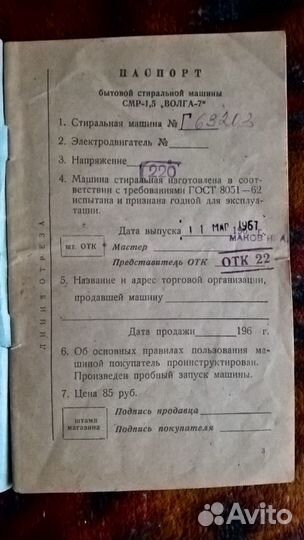 ПАСПОРТ
бытовой стиральной машины
СМР-1,5 „ВОЛГА-7"
1. Стиральная машина № Г 63203
2. Электродвигатель №
3. Напряжение 220
4. Машина стиральная изготовлена в соот-
ветствии с требованиями ГОСТ 8051—62
испытана и признана годной для эксплуа-
тации.
Дата выпуска 11 МАР 1967
шт. ОТК
Мастер
Представитель ОТК ОТК 22
5. Название и адрес торговой организации,
продавшей машину
Дата продажи 196 г.
6. Об основных правилах пользования ма-
шиной покупатель проинструктирован.
Произведен пробный запуск машины.
7. Цена 85 руб.
штамп
магазина
Подпись продавца
Подпись покупателя
3
ЛИНИЯ ОТРЕЗА
Avito